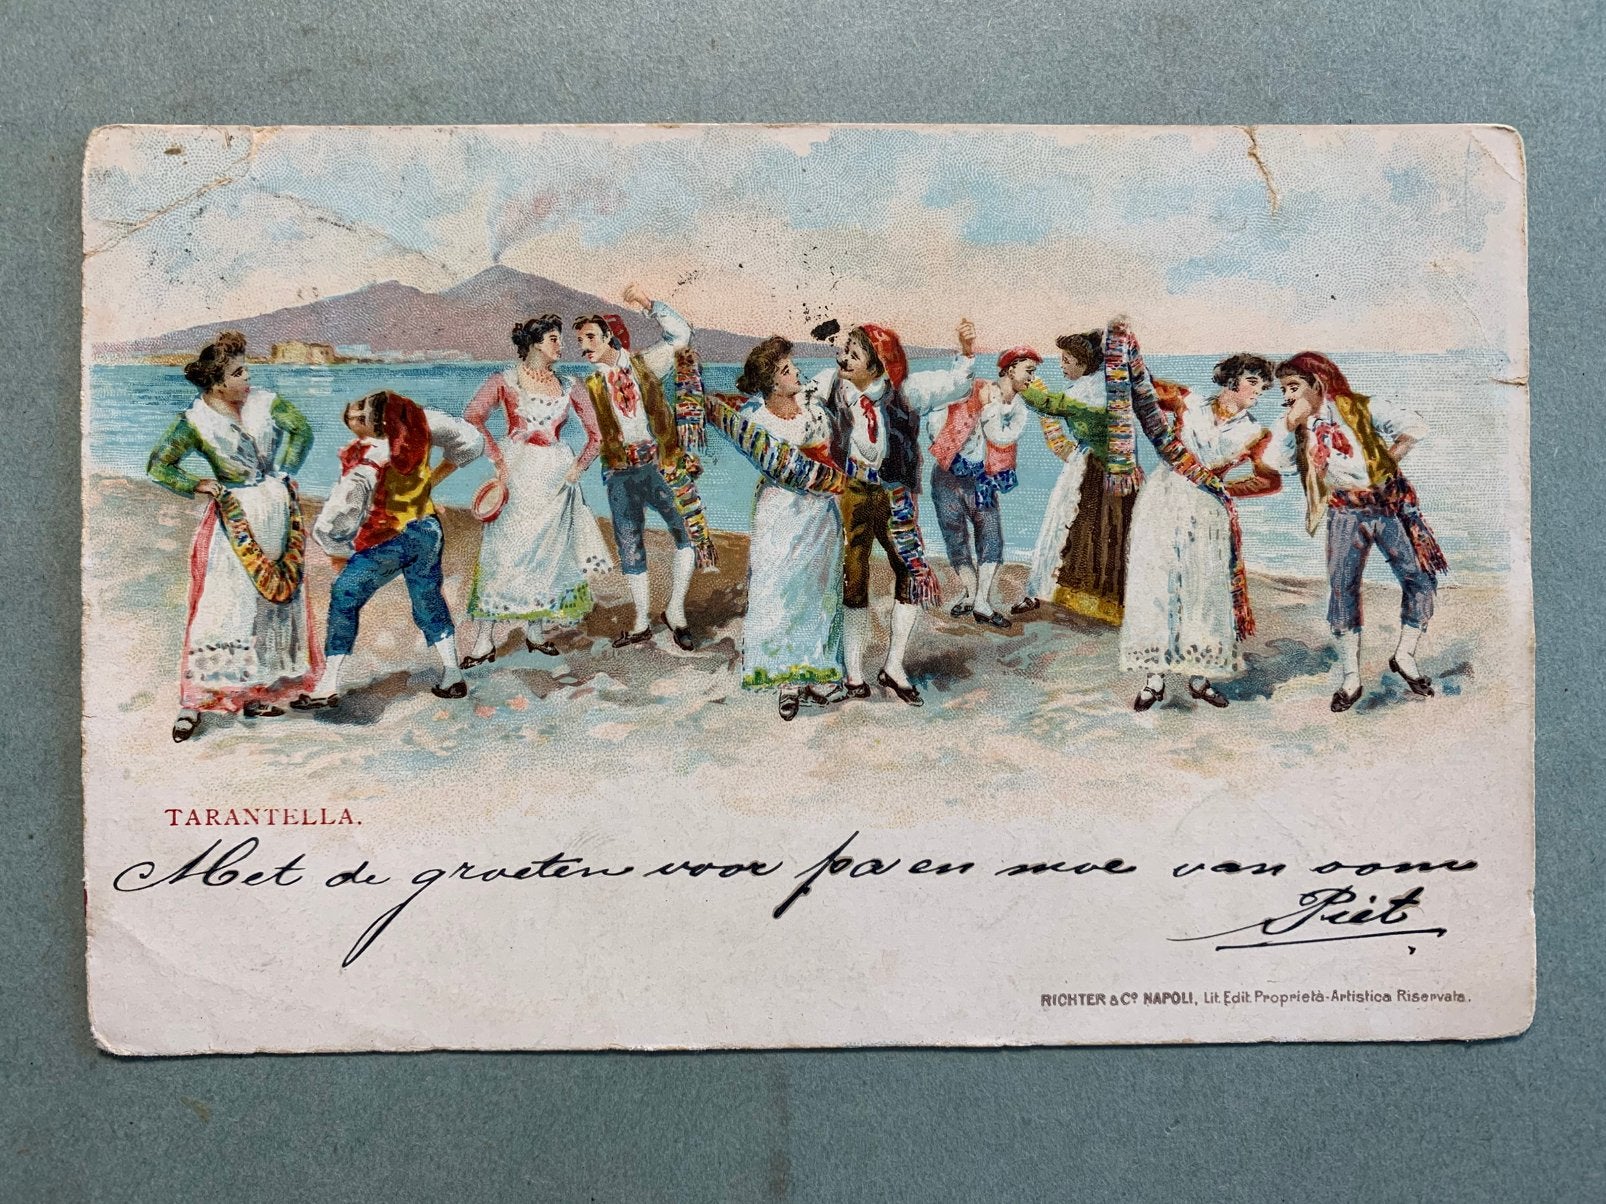 TARANTELLA.
Met de groeten voor pa en moe van oom
Piet
RICHTER & Cº NAPOLI, Lit. Edit. Proprietà-Artistica Riservata.